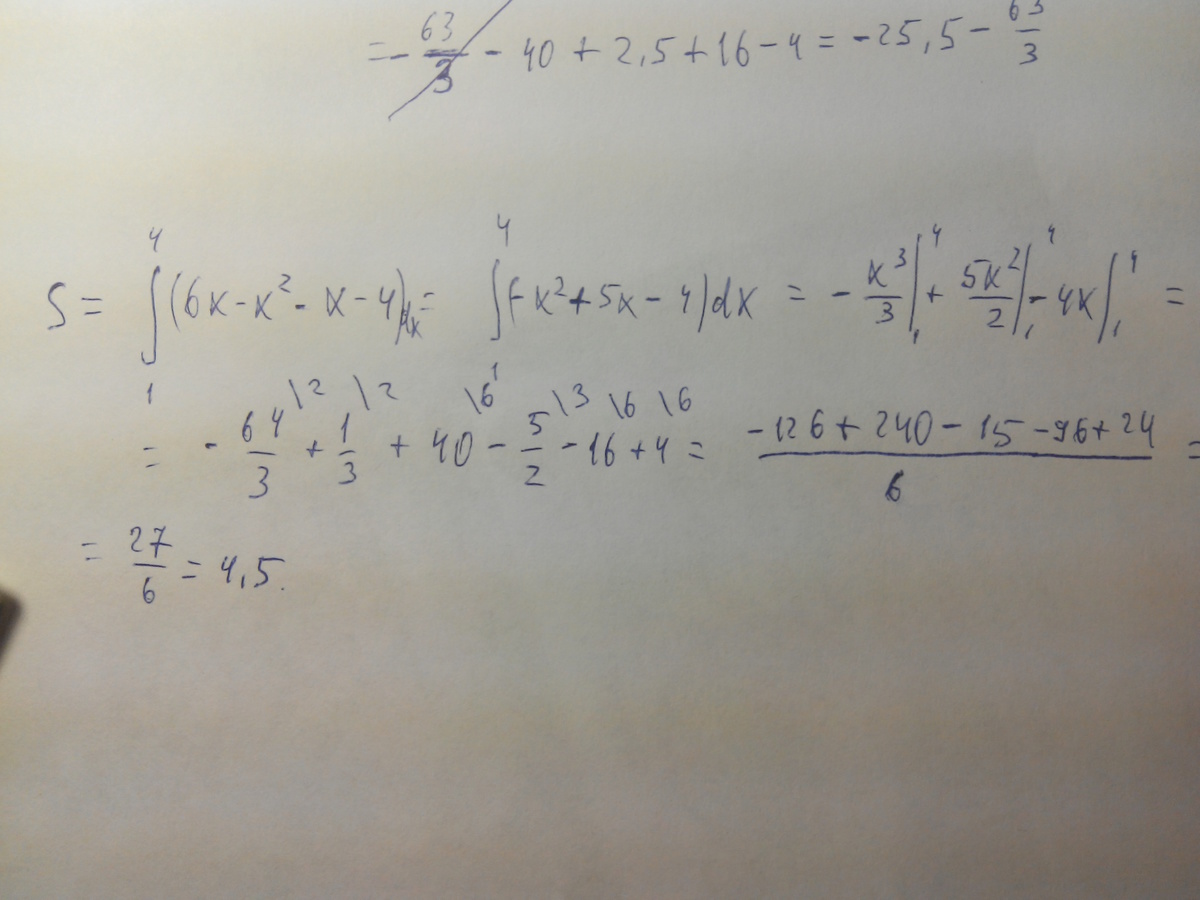 = - 63/3 - 40 + 2,5 + 16 - 4 = -25,5 - 63/3
S = ∫₁⁴ (6x - x² - x - 4)dx = ∫₁⁴ (-x² + 5x - 4)dx = - x³/3 |₁⁴ + 5x²/2 |₁⁴ - 4x |₁⁴ =
= - 64/3 \2 + 1/3 \2 + 40 \6 - 5/2 \3 - 16 \6 + 4 \6 = (-126 + 240 - 15 - 96 + 24)/6 =
= 27/6 = 4,5.